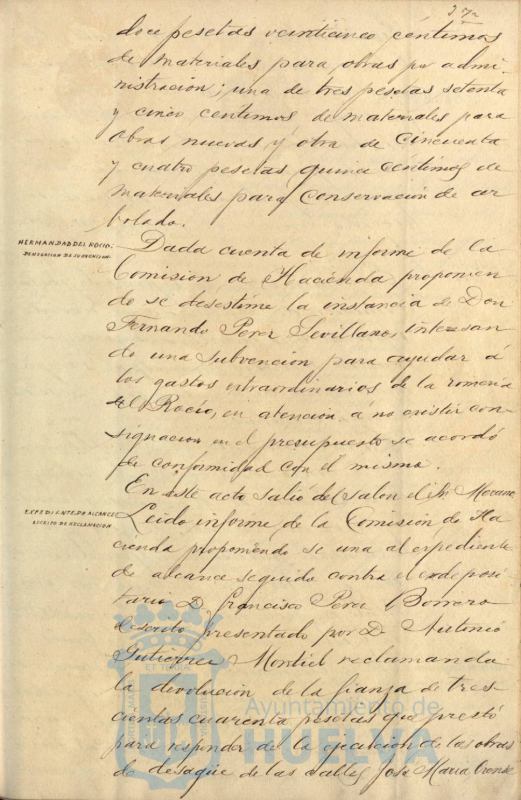 doce pesetas veinticinco céntimos
de materiales para obras por admi-
nistracion; una de tres pesetas setenta
y cinco centimos de materiales para
obras nuevas y otra de cincuenta
y cuatro pesetas quince céntimos de
materiales para conservacion de ar
bolado.
HERMANDAD DEL ROCIO:
DENEGACION DE SUBVENCION.
Dada cuenta de informe de la
Comision de Hacienda proponien
do se desestime la instancia de Don
Fernando Perez Sevillano, interesan
do una subvencion para ayudar á
los gastos extraordinarios de la romeria
del Rocío, en atencion á no existir con-
signacion en el presupuesto se acordó
de conformidad con el mismo.
En este acto salió del salon el Sr. Moreno
EXPEDIENTE DE ALCANCE
ESCRITO DE RECLAMACIÓN
Leido informe de la Comisión de Ha
cienda proponiendo se una al expediente
de alcance seguido contra el exdeposi
tario D. Francisco Perez Borrero
escrito presentado por D. Antonio
Gutierrez Montiel reclamando
la devolucion de la fianza de tres
cientas cuarenta pesetas que prestó
para responder de la ejecucion de las obras
de desagüe de las calles José Maria
Ayuntamiento de
HUELVA